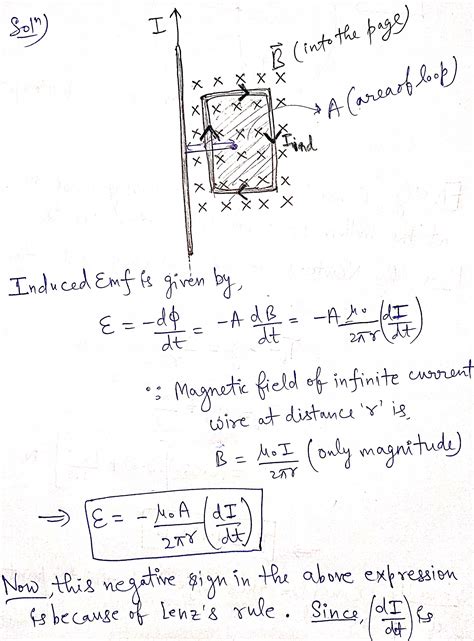 Solⁿ)
I
B⃗ (into the page)
A (area of loop)
Iind
Induced Emf is given by,
ε = -dϕ/dt = -A dB/dt = -A μ₀/2πr (dI/dt)
∵ Magnetic field of infinite current
wire at distance 'r' is,
B = μ₀I/2πr (only magnitude)
⇒ ε = - μ₀A/2πr (dI/dt)
Now, this negative sign in the above expression
is because of Lenz's rule. Since, (dI/dt) is